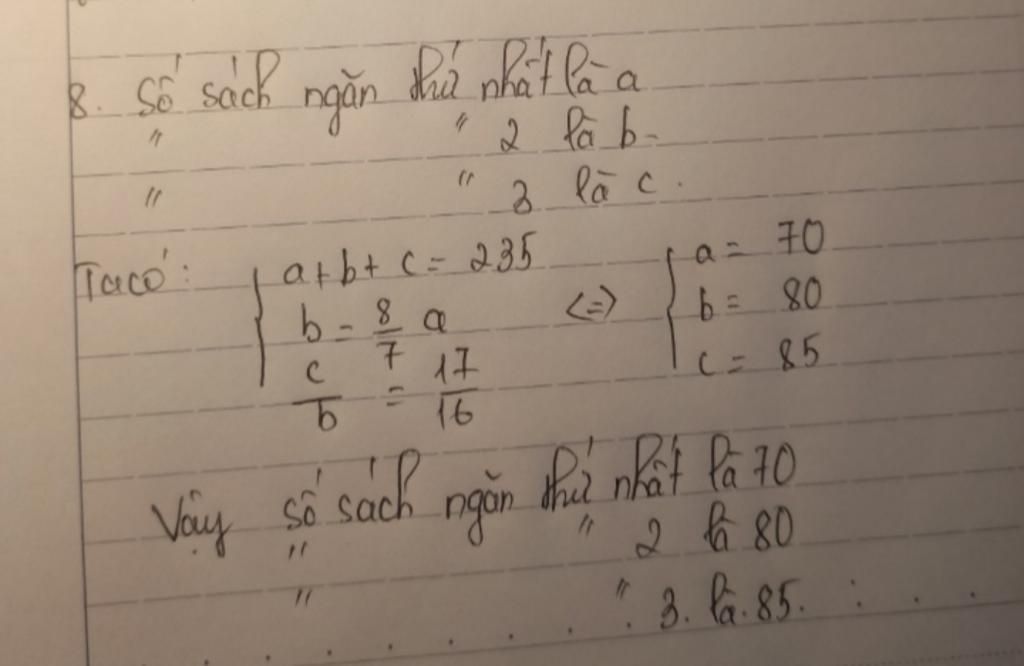 8. Số sách ngăn thứ nhất là a
" " 2 là b.
" " 3 là c.
Ta có: { a + b + c = 235 <=> { a = 70
b = 8/7 a b = 80
c/b = 17/16 c = 85
Vậy số sách ngăn thứ nhất là 70
" " 2 là 80
" " 3. là 85.